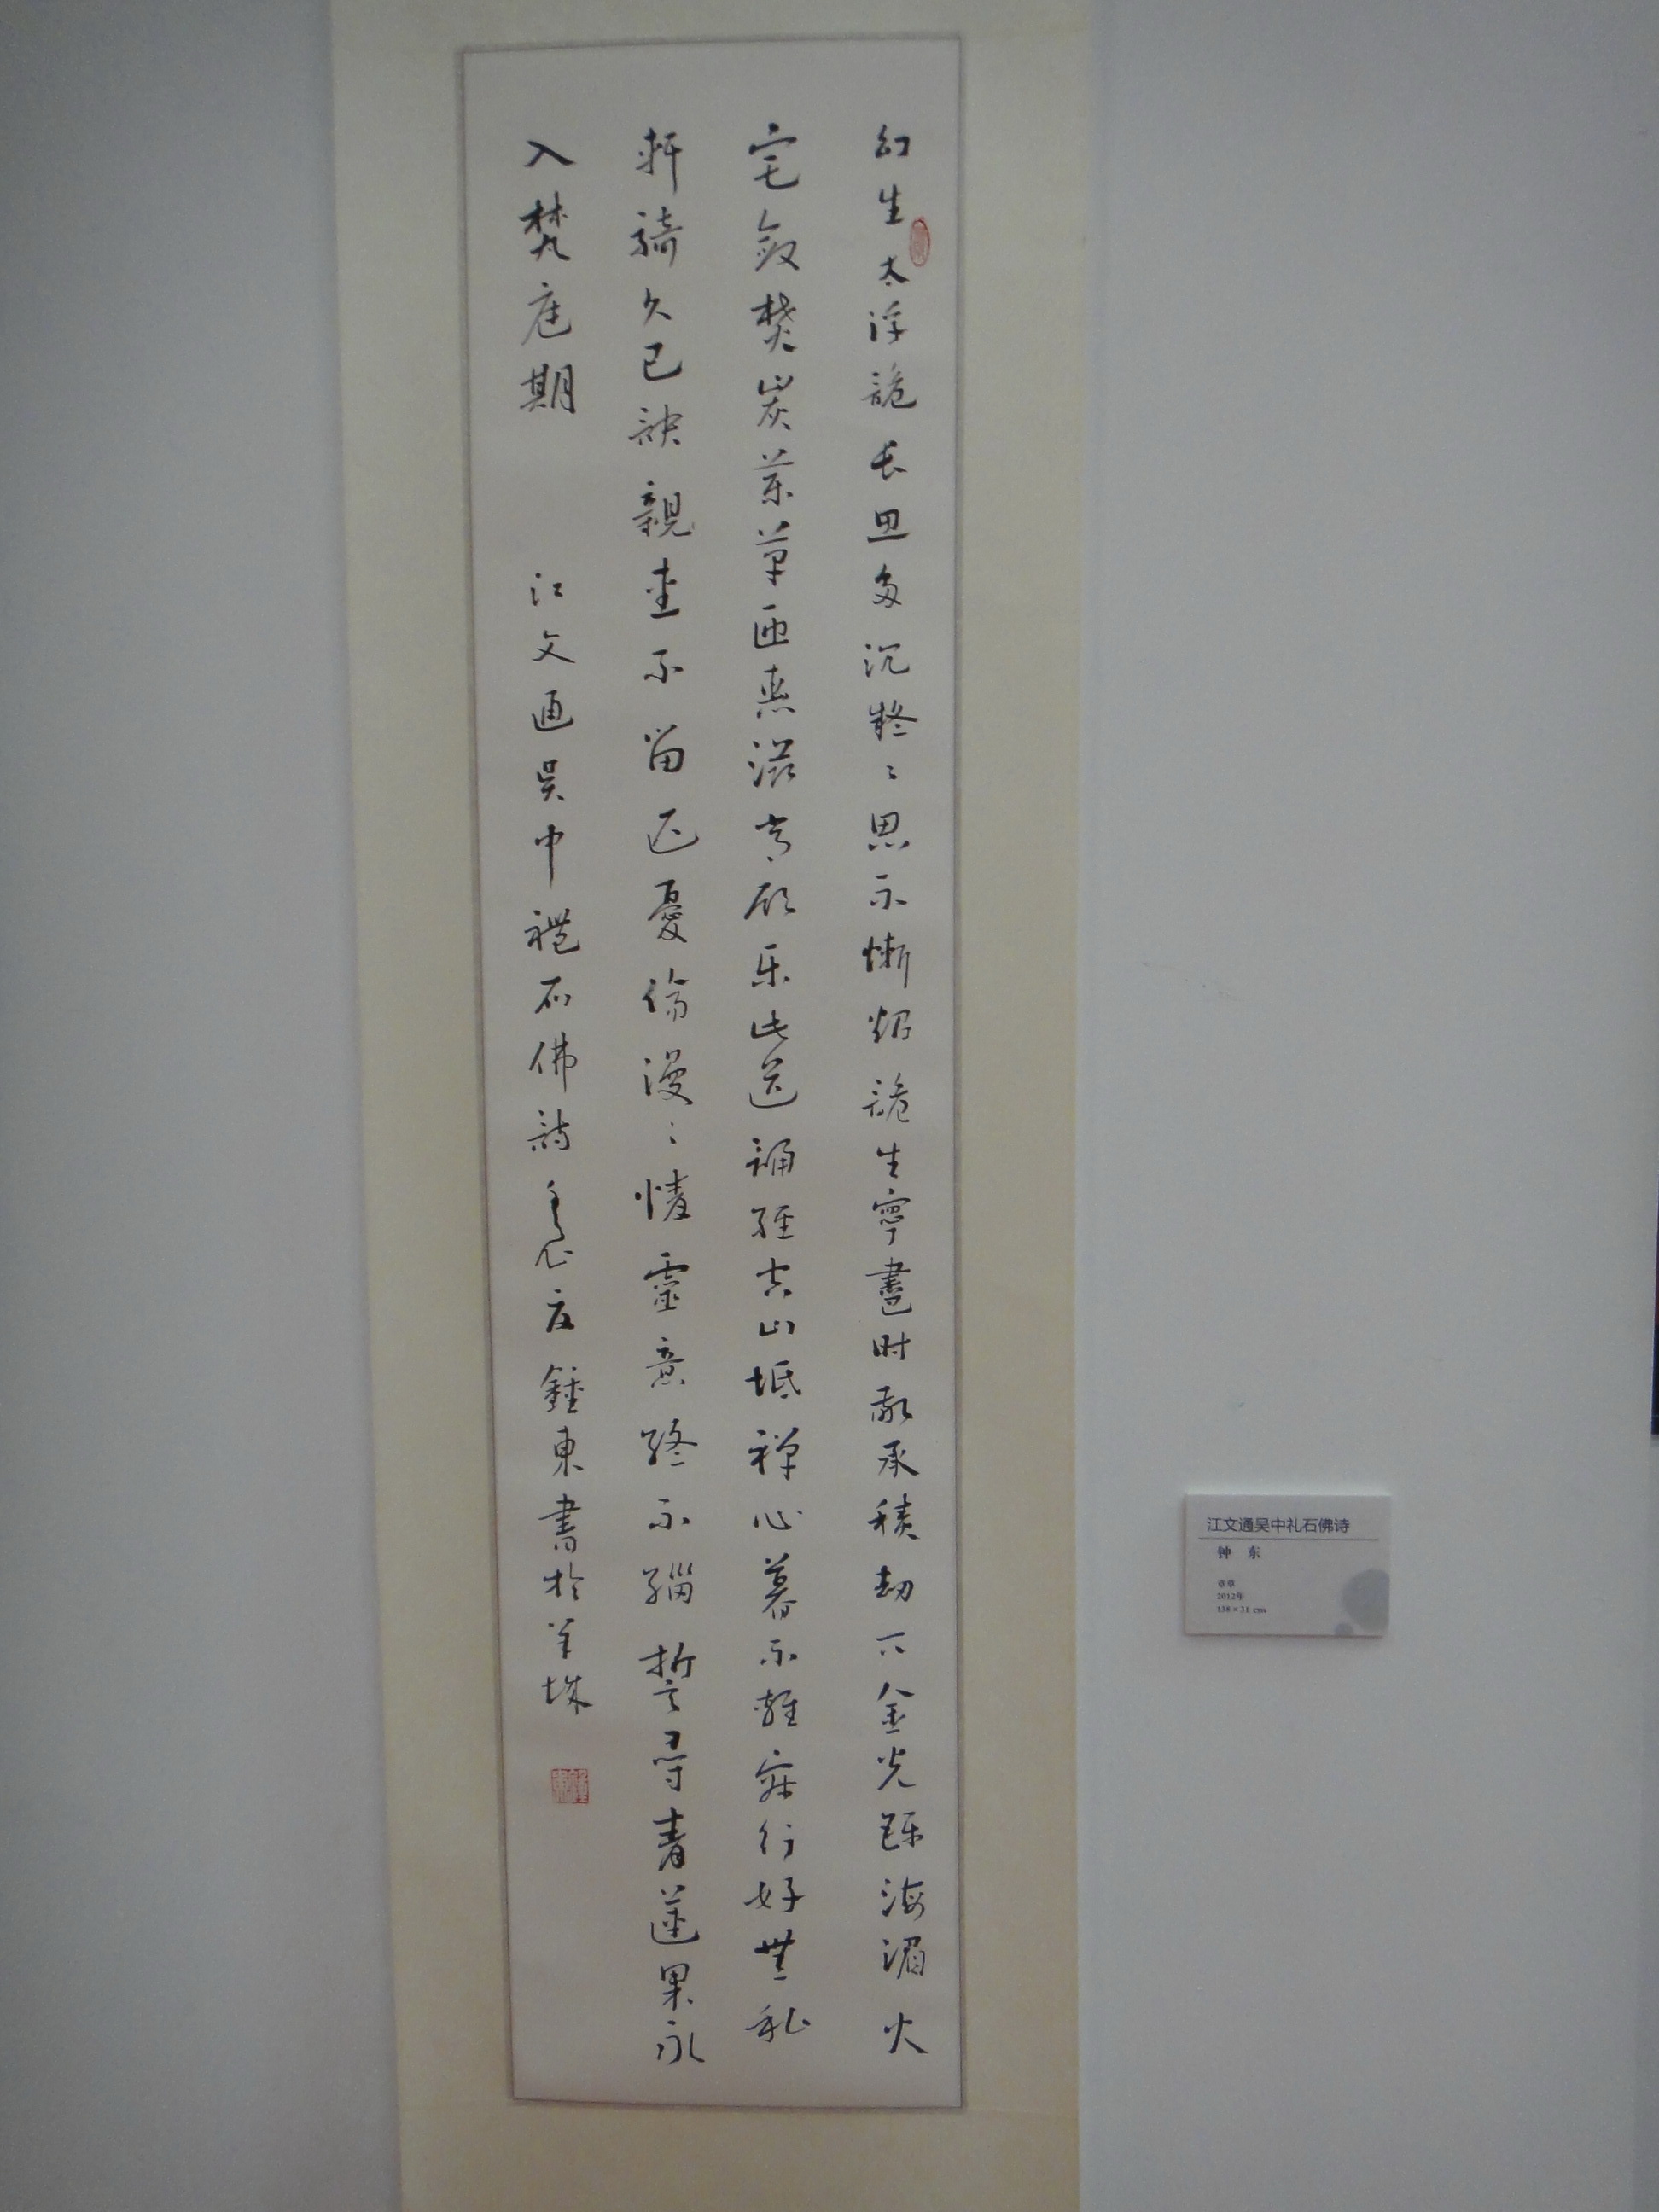 幻生太浮詭長思多沉疑〻思不慚炤詭生寧盡時敬承積劫下金光鑠海湄火
宅斂焚炭藥草匝惠滋常願樂此道誦經空山坻禪心暮不雜寂行好無私
軒騎久已訣親愛不留遲憂傷漫〻情靈意終不緇誓尋青蓮果永
入梵庭期 江文通吳中禮石佛詩壬辰夏鍾東書於羊城
江文通吴中礼石佛诗
钟 东
章草
2012年
138×31 cm